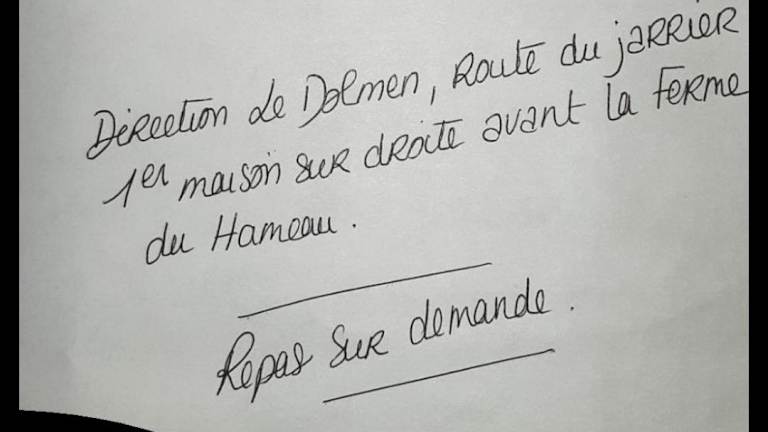 Direction Le Dolmen, Route du jarrier
1er maison sur droite avant la ferme
du Hameau.
Repas sur demande.